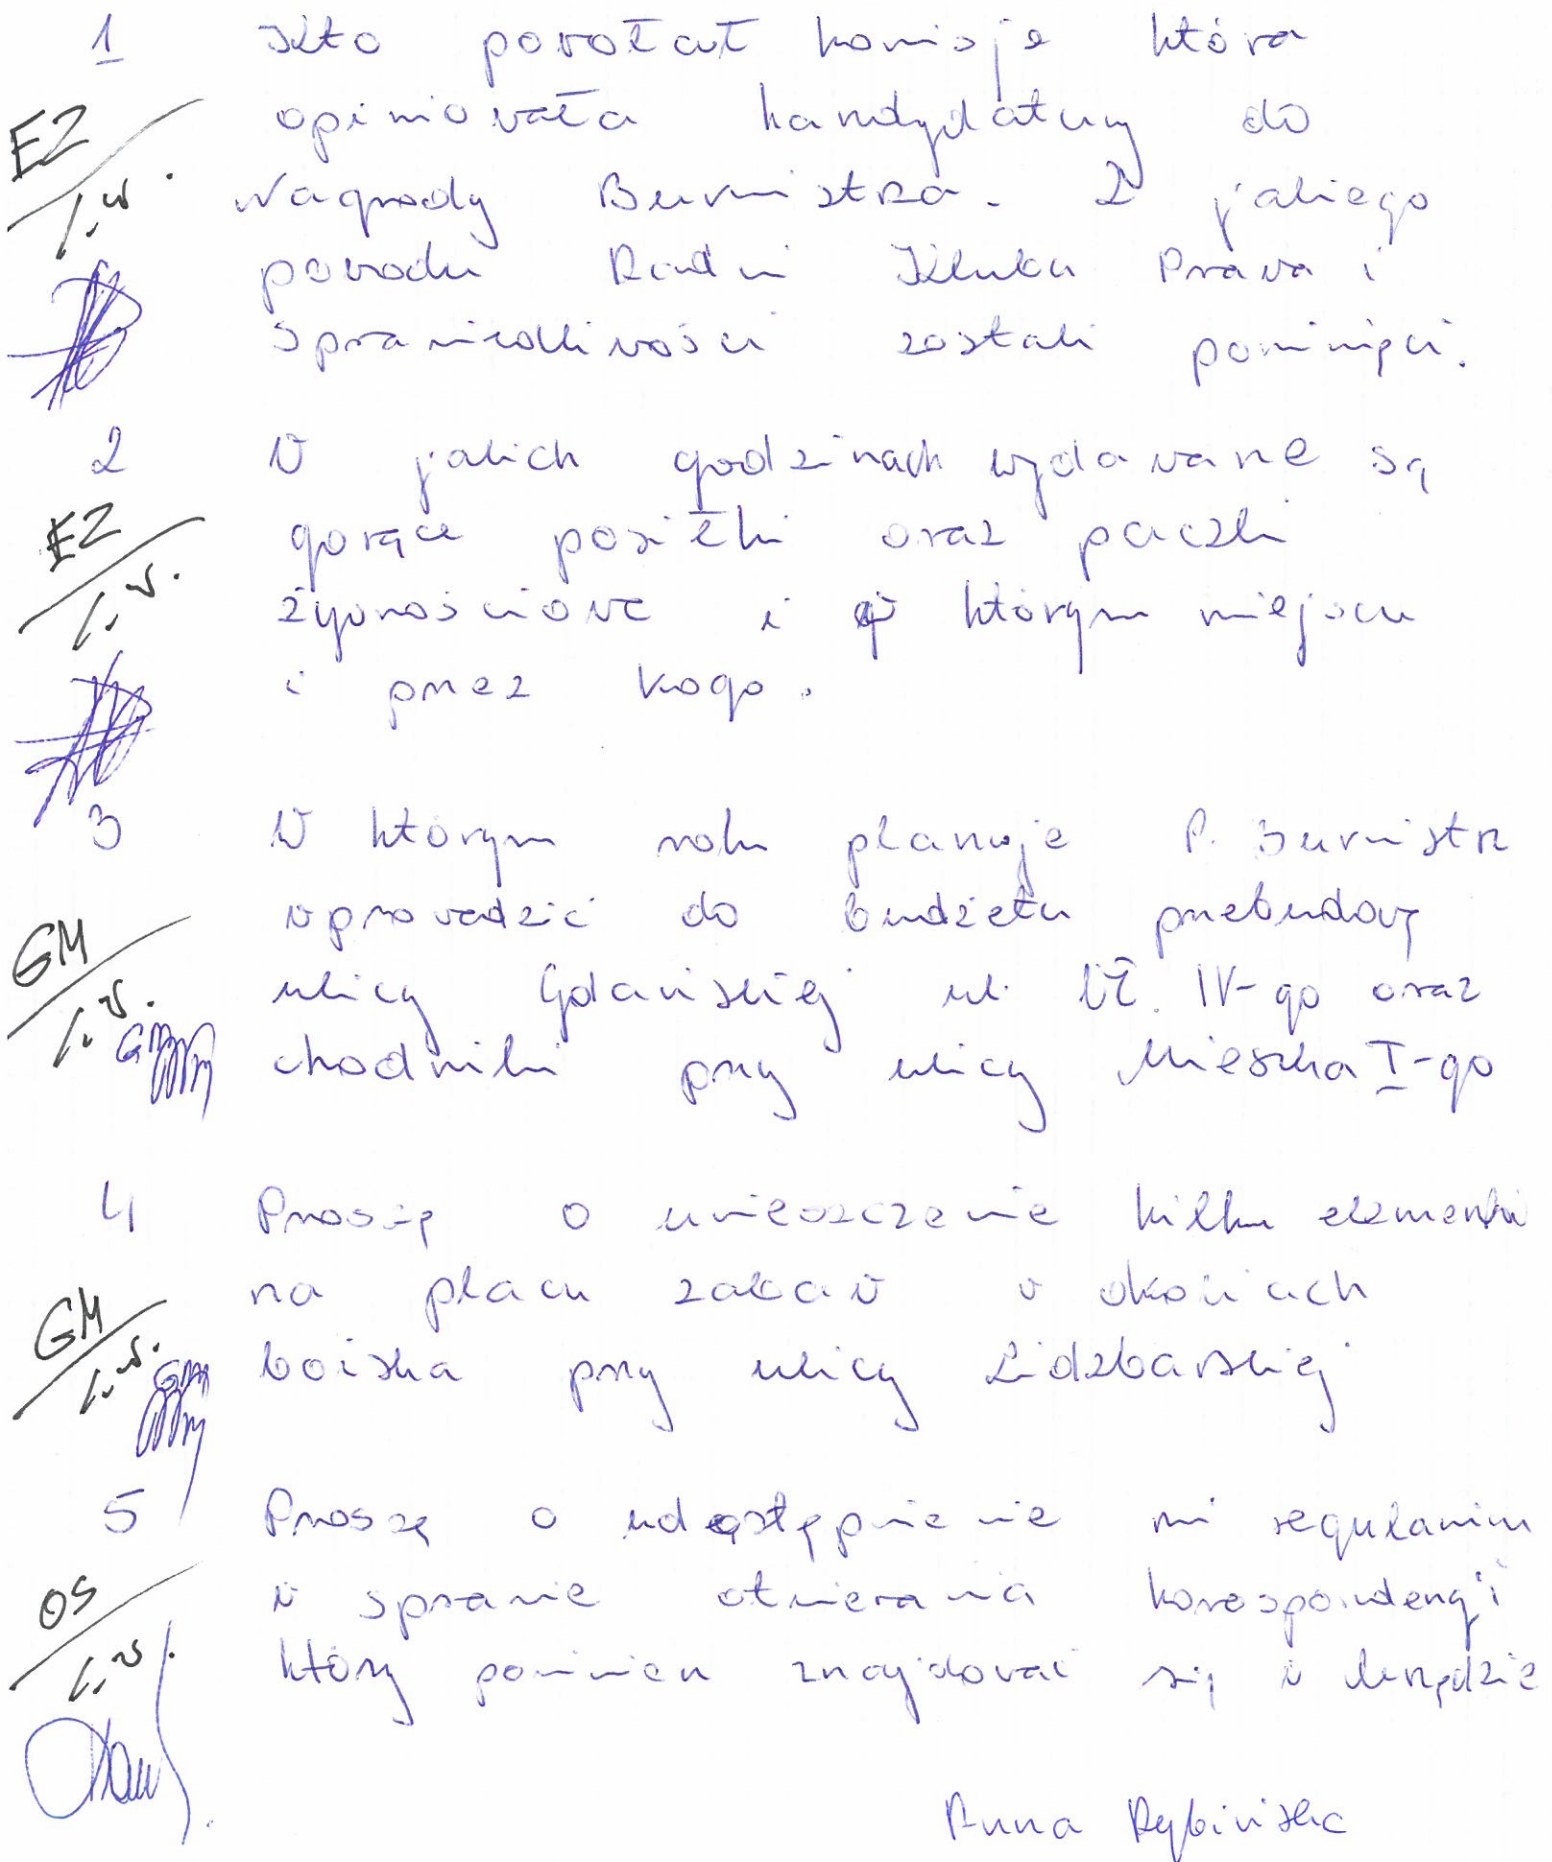 1 Kto powołał komisje która
opiniowała kandydatury do
EZ
Nagrody Burmistrza. Z jakiego
powodu Radni Klubu Prawa i
Sprawiedliwości zostali pominięci.
2 W jakich godzinach wydawane są
EZ
gorące posiłki oraz paczki
żywnościowe i w którym miejscu
i przez kogo.
3 W którym roku planuje P. Burmistrz
wprowadzić do budżetu przebudowę
GM
ulicy Gdańskiej ul. Wł. IV-go oraz
GM
chodniki przy ulicy Mieszka I-go
4 Proszę o umieszczenie kilku elementów
na placu zabaw w okolicach
GM
boiska przy ulicy Lidzbarskiej
GM
5 Proszę o udostępnienie mi regulaminu
w sprawie otwierania korespondencji
OS
który powinien znajdować się w Urzędzie
Anna Rybińska